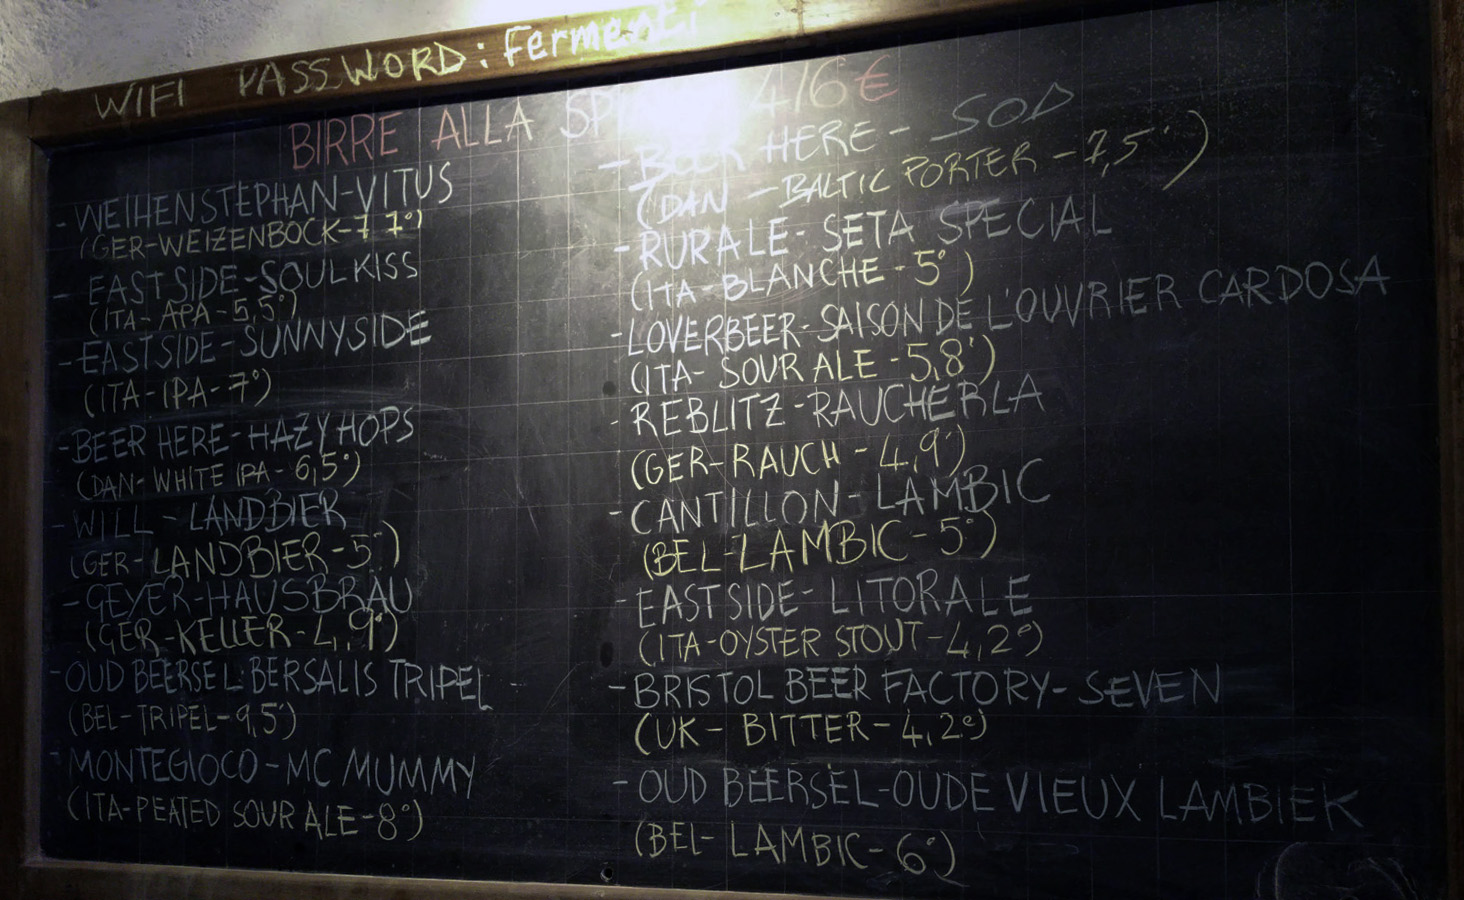 WIFI PASSWORD: Fermenti
BIRRE ALLA 4/6€
- WEIHENSTEPHAN-VITUS
(GER-WEIZENBOCK-7,7°)
- EAST SIDE-SOUL KISS
(ITA-APA-5,5°)
- EASTSIDE-SUNNYSIDE
(ITA-IPA-7°)
- BEER HERE-HAZY HOPS
(DAN-WHITE IPA-6,5°)
- WILL-LANDBIER
(GER-LANDBIER-5°)
- GEYER-HAUSBRÄU
(GER-KELLER-4,9°)
- OUD BEERSEL-BERSALIS TRIPEL
(BEL-TRIPEL-9,5°)
- MONTEGIOCO-MC MUMMY
(ITA-PEATED SOUR ALE-8°)
- BEER HERE- SOD
(DAN-BALTIC PORTER-7,5°)
- RURALE-SETA SPECIAL
(ITA-BLANCHE-5°)
- LOVERBEER-SAISON DE L'OUVRIER CARDOSA
(ITA-SOUR ALE-5,8°)
- REBLITZ-RAUCHERLA
(GER-RAUCH-4,9°)
- CANTILLON-LAMBIC
(BEL-LAMBIC-5°)
- EASTSIDE-LITORALE
(ITA-OYSTER STOUT-4,2°)
- BRISTOL BEER FACTORY-SEVEN
(UK-BITTER-4,2°)
- OUD BEERSEL-OUDE VIEUX LAMBIEK
(BEL-LAMBIC-6°)